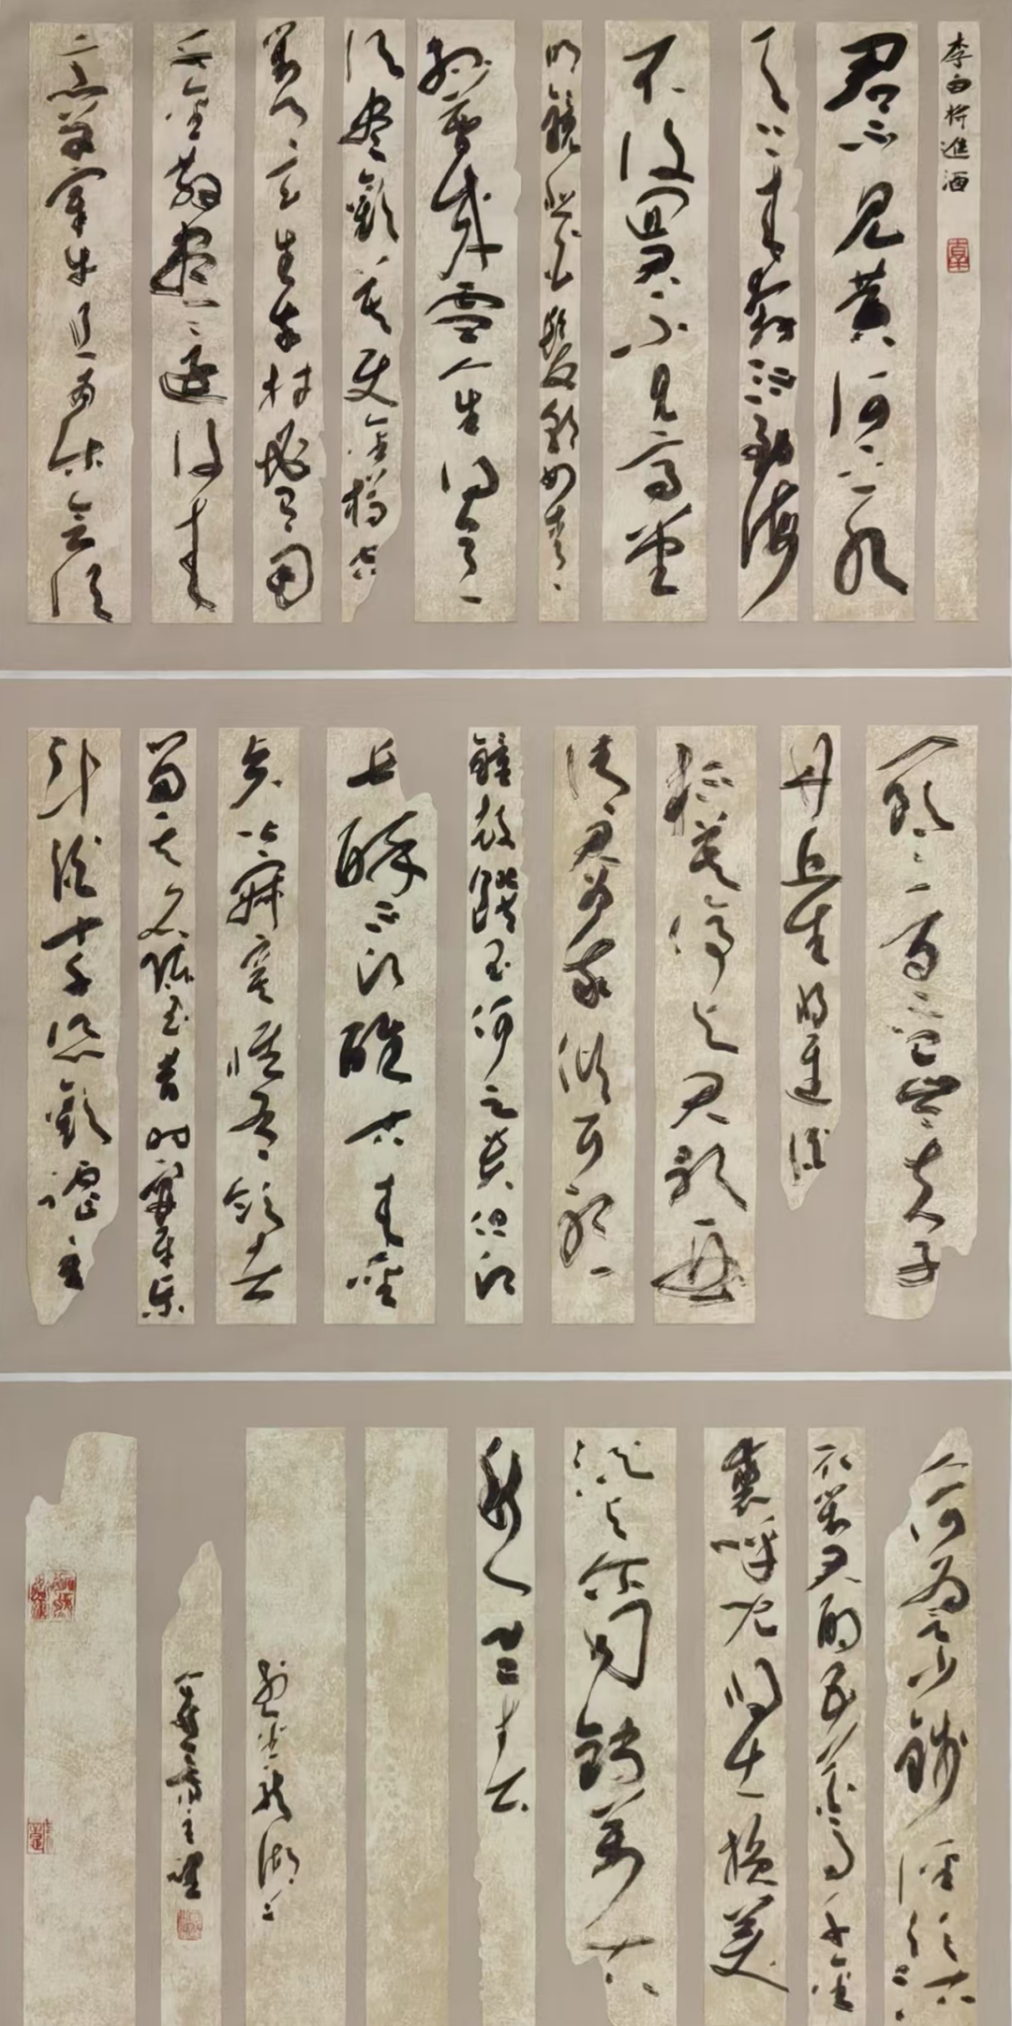 李白将進酒
君不見黄河之水
天上来奔流到海
不復回君不見高堂
明鏡悲白髮朝如青
絲暮成雪人生得意
須盡歡莫使金樽空
對月天生我材必有用
千金散盡還復来
烹羊宰牛且為樂會須
一飲三百杯岑夫子
丹丘生將進酒
杯莫停與君歌一曲
請君為我傾耳聽
鐘鼓饌玉何足貴但願
長醉不願醒古来聖
賢皆寂寞惟有飲者
留其名陳王昔時宴平樂
斗酒十千恣歡謔主
人何為言少錢徑須沽
取君酌五花馬千金
裘呼兒將出換美
酒與爾同銷萬古
愁